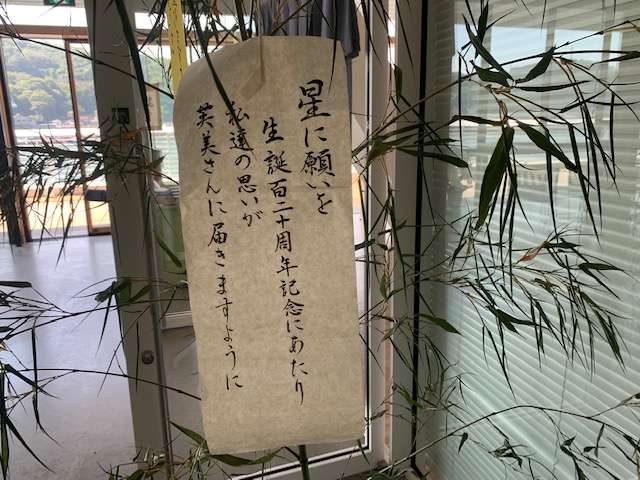 星に願いを
生誕百二十周年記念にあたり
私達の思いが
芙美さんに届きますように